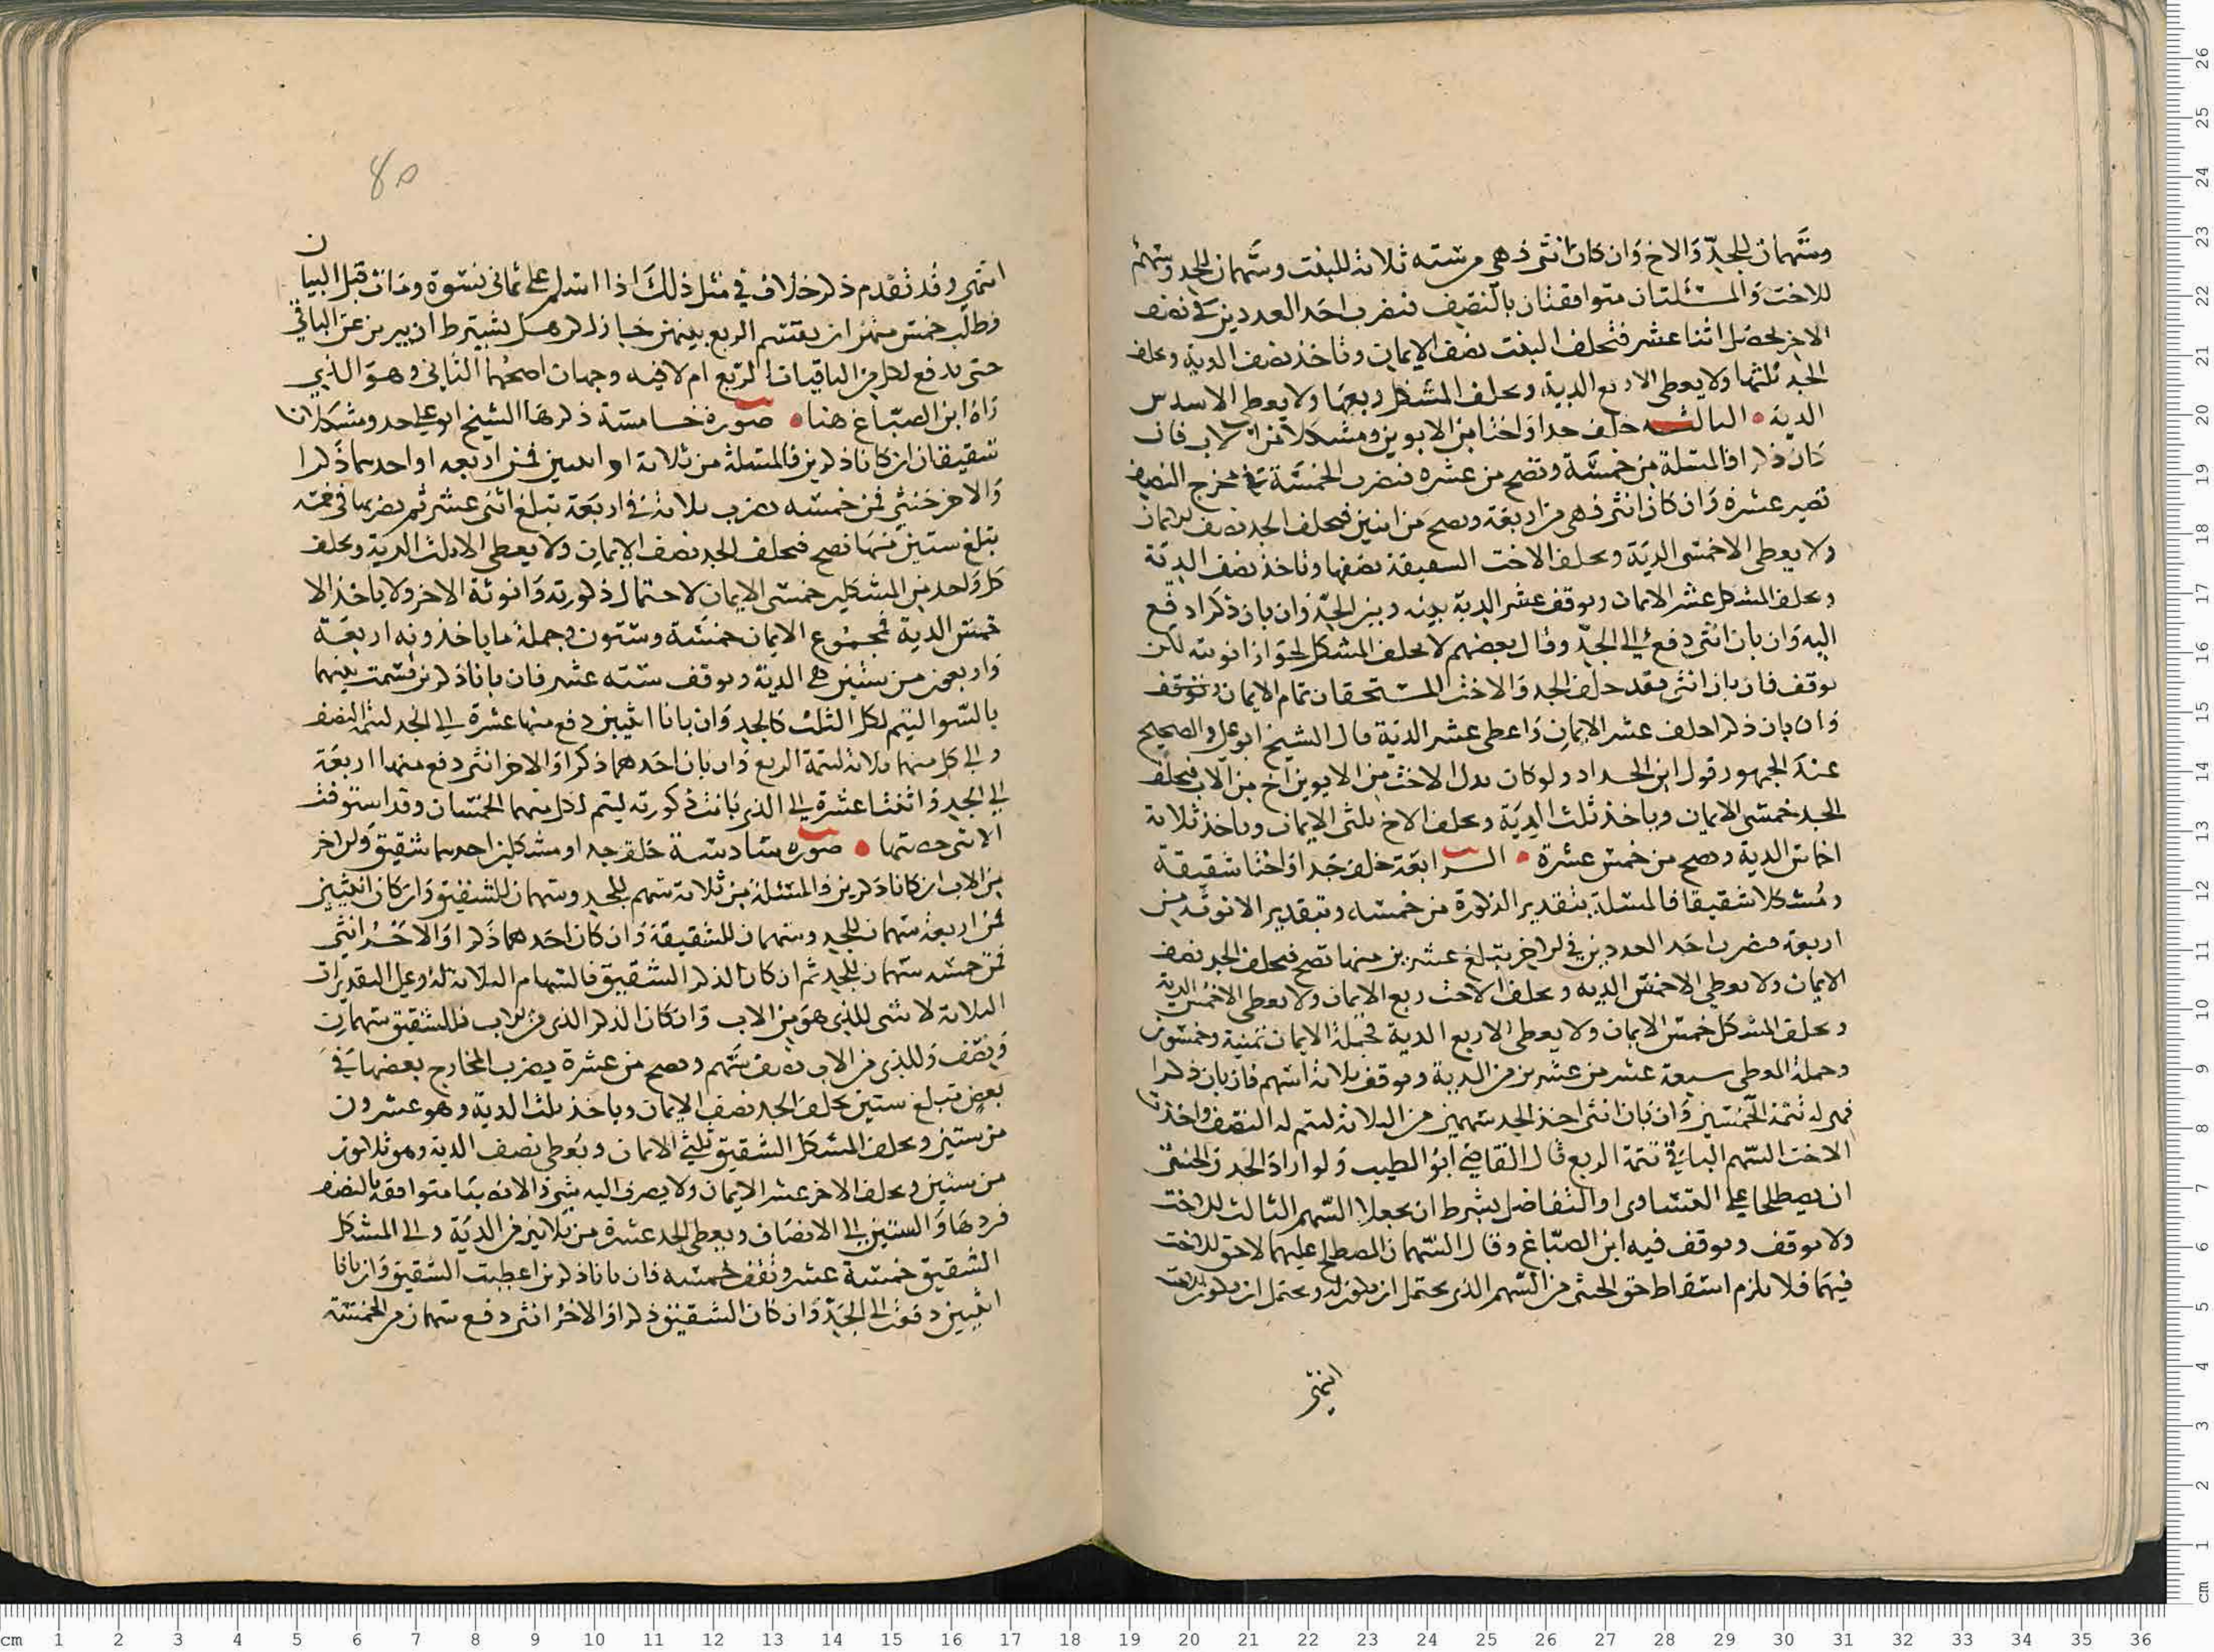 وسهمان للجد والاخ وان كان انثى فهي من ستة ثلاثة للبنت وسهمان للجد وسهم
للاخت والمسئلتان متوافقتان بالنصف فنضرب احد العددين في نصف
الاخر يحصل اثنا عشر فتحلف البنت نصف الايمان وتاخذ نصف الدية ويحلف
الجد ثلثها ولا يعطى الا ربع الدية ويحلف المشكل ربعها ولا يعطى الا سدس
الدية الثالثة خلف جدا واختا من الابوين ومشكلا من الاب فان
كان ذكرا فالمسئلة من خمسة وتصح من عشرة فنضرب الخمسة في مخرج النصف
تصير عشرة وان كان انثى فهي من اربعة وتصح من اثنين فيحلف الجد نصف الايمان
ولا يعطى الا خمسي الدية ويحلف الاخت الشقيقة نصفها وتاخذ نصف الدية
ويحلف المشكل عشر الايمان ويوقف عشر الدية بينه وبين الجد فان بان ذكرا دفع
اليه وان بان انثى دفع الى الجد وقال بعضهم لا يحلف المشكل لجواز انوثته لكن
يوقف فان بان انثى فقد حلف الجد والاخت المستحقان تمام الايمان
وان بان ذكرا حلف عشر الايمان واعطي عشر الدية قال الشيخ ابو علي والصحيح
عند الجمهور قول ابن الحداد ولو كان بدل الاخت من الابوين اخ من الاب فيحلف
الجد خمسي الايمان وياخذ ثلث الدية ويحلف الاخ ثلثي الايمان وياخذ ثلاثة
اخماس الدية وتصح من خمس عشرة الرابعة خلف جدا واختا شقيقة
ومشكلا شقيقا فالمسئلة بتقدير الذكورة من خمسة وبتقدير الانوثة من
اربعة فنضرب احد العددين في الاخر تبلغ عشرين منها تصح فيحلف الجد نصف
الايمان ولا يعطى الا خمسي الدية ويحلف الاخت ربع الايمان ولا يعطى الا خمس الدية
ويحلف المشكل خمسي الايمان ولا يعطى الا ربع الدية فجملة الايمان ثمنية وخمسون
وجملة المعطى سبعة عشر من عشرين من الدية ويوقف ثلاثة اسهم فان بان ذكرا
فهي له تتمة الخمسين وان بان انثى اخذ الجد سهمين من الثلاثة ليتم له النصف واخذت
الاخت السهم الباقي تتمة الربع قال القاضي ابو الطيب ولو اراد الجد والخنثى
ان يصطلحا على التساوي او التفاضل بشرط ان يجعلا السهم الثالث للاخت
ولا يوقف ويوقف فيه ابن الصباغ وقال السهمان المصطلح عليهما لا حق للاخت
فيهما فلا يلزم اسقاط حق الخنثى من السهم الذي يحتمل ان يكون له ويحتمل ان يكون للاخت
انتهى
80
انتهى وقد تقدم ذكر خلاف في مثل ذلك اذا اسلم على ثماني نسوة ومات قبل البيان
وطلب خمس منهن ان يقتسم الربع بينهن جاز لكن هل يشترط ان يبرين عن الباقي
حتى يدفع لكل من الباقيات الربع ام لا فيه وجهان اصحهما الثاني وهو الذي
راه ابن الصباغ هنا صورة خامسة ذكرها الشيخ ابو علي جد ومشكلان
شقيقان ان كانا ذكرين فالمسئلة من ثلاثة او انثيين فمن اربعة او احدهما ذكرا
والاخر خنثى فمن خمسة نضرب ثلاثة في اربعة تبلغ اثنى عشر ثم نضربها في خمسة
تبلغ ستين منها تصح فيحلف الجد نصف الايمان ولا يعطى الا ثلث الدية ويحلف
كل واحد من المشكلين خمسي الايمان لاحتمال ذكورته وانوثة الاخر ولا ياخذ الا
خمس الدية فمجموع الايمان خمسة وستون وجملة ما ياخذونه اربعة
واربعون من ستين هي الدية ويوقف ستة عشر فان بانا ذكرين قسمت بينهما
بالسوا ليتم لكل الثلث كالجد وان بانا انثيين دفع منها عشرة الى الجد لتتمة النصف
والى كل منهما ثلاثة لتتمة الربع وان بان احدهما ذكرا والاخر انثى دفع منها اربعة
الى الجد واثنتا عشرة الى الذي بانت ذكورته ليتم لكل منهما الخمسان وقد استوفت
الانثى حصتها صورة سادسة خلف جدا ومشكلين احدهما شقيق والاخر
من الاب ان كانا ذكرين فالمسئلة من ثلاثة سهم للجد وسهمان للشقيق وان كان انثيين
فمن اربعة سهمان للجد وسهمان للشقيقة وان كان احدهما ذكرا والاخر انثى
فمن خمسة سهمان للجد ثم ان كان الذكر الشقيق فالسهام الثلاثة له وعلى التقديرات
الثلاثة لا شى للذي هو من الاب وان كان الذكر الذي من الاب فللشقيق سهمان
ونصف وللذي من الاب نصف سهم وتصح من عشرة يضرب المخارج بعضها في
بعض تبلغ ستين يحلف الجد نصف الايمان وياخذ ثلث الدية وهو عشرون
من ستين ويحلف المشكل الشقيق ثلثي الايمان ويعطى نصف الدية وهو ثلاثون
من ستين ويحلف الاخر عشر الايمان ولا يصرف اليه شى الا انه متوافقة بالنصف
فردها والستين الى الانصاف ويعطى الجد عشرة من ثلاثين من الدية والى المشكل
الشقيق خمسة عشر وتقف خمسة فان بانا ذكرين اعطيت الشقيق وان بانا
انثيين دفعت الى الجد وان كان الشقيق ذكرا والاخر انثى دفع سهمان من الخمسة